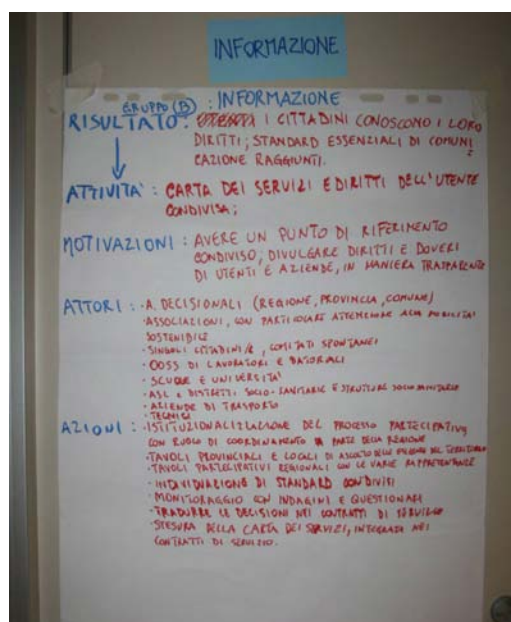 INFORMAZIONE
GRUPPO (B) : INFORMAZIONE
RISULTATO : I CITTADINI CONOSCONO I LORO
DIRITTI; STANDARD ESSENZIALI DI COMUNI
CAZIONE RAGGIUNTI.
ATTIVITA' : CARTA DEI SERVIZI E DIRITTI DELL'UTENTE
CONDIVISA;
MOTIVAZIONI : AVERE UN PUNTO DI RIFERIMENTO
CONDIVISO, DIVULGARE DIRITTI E DOVERI
DI UTENTI E AZIENDE, IN MANIERA TRASPARENTE
ATTORI : · A. DECISIONALI (REGIONE, PROVINCIA, COMUNE)
· ASSOCIAZIONI, CON PARTICOLARE ATTENZIONE ALLA MOBILITA'
SOSTENIBILE
· SINGOLI CITTADINI/E, COMITATI SPONTANEI
· OOSS DI LAVORATORI E DATORIALI
· SCUOLE E UNIVERSITA'
· ASL E DISTRETTI SOCIO-SANITARIE E STRUTTURE
· AZIENDE DI TRASPORTO
· TECNICI
AZIONI : · ISTITUZIONALIZZAZIONE DEL PROCESSO PARTECIPATIVO
CON RUOLO DI COORDINAMENTO DA PARTE DELLA REGIONE
· TAVOLI PROVINCIALI E LOCALI DI ASCOLTO DELLE ESIGENZE DEL TERRITORIO
· TAVOLI PARTECIPATIVI REGIONALI CON LE VARIE RAPPRESENTANZE
· INDIVIDUAZIONE DI STANDARD CONDIVISI
· MONITORAGGIO CON INDAGINI E QUESTIONARI
· TRADURRE LE DECISIONI NEI CONTRATTI DI SERVIZIO
· STESURA DELLA CARTA DEI SERVIZI, INTEGRATA NEI
CONTRATTI DI SERVIZIO.